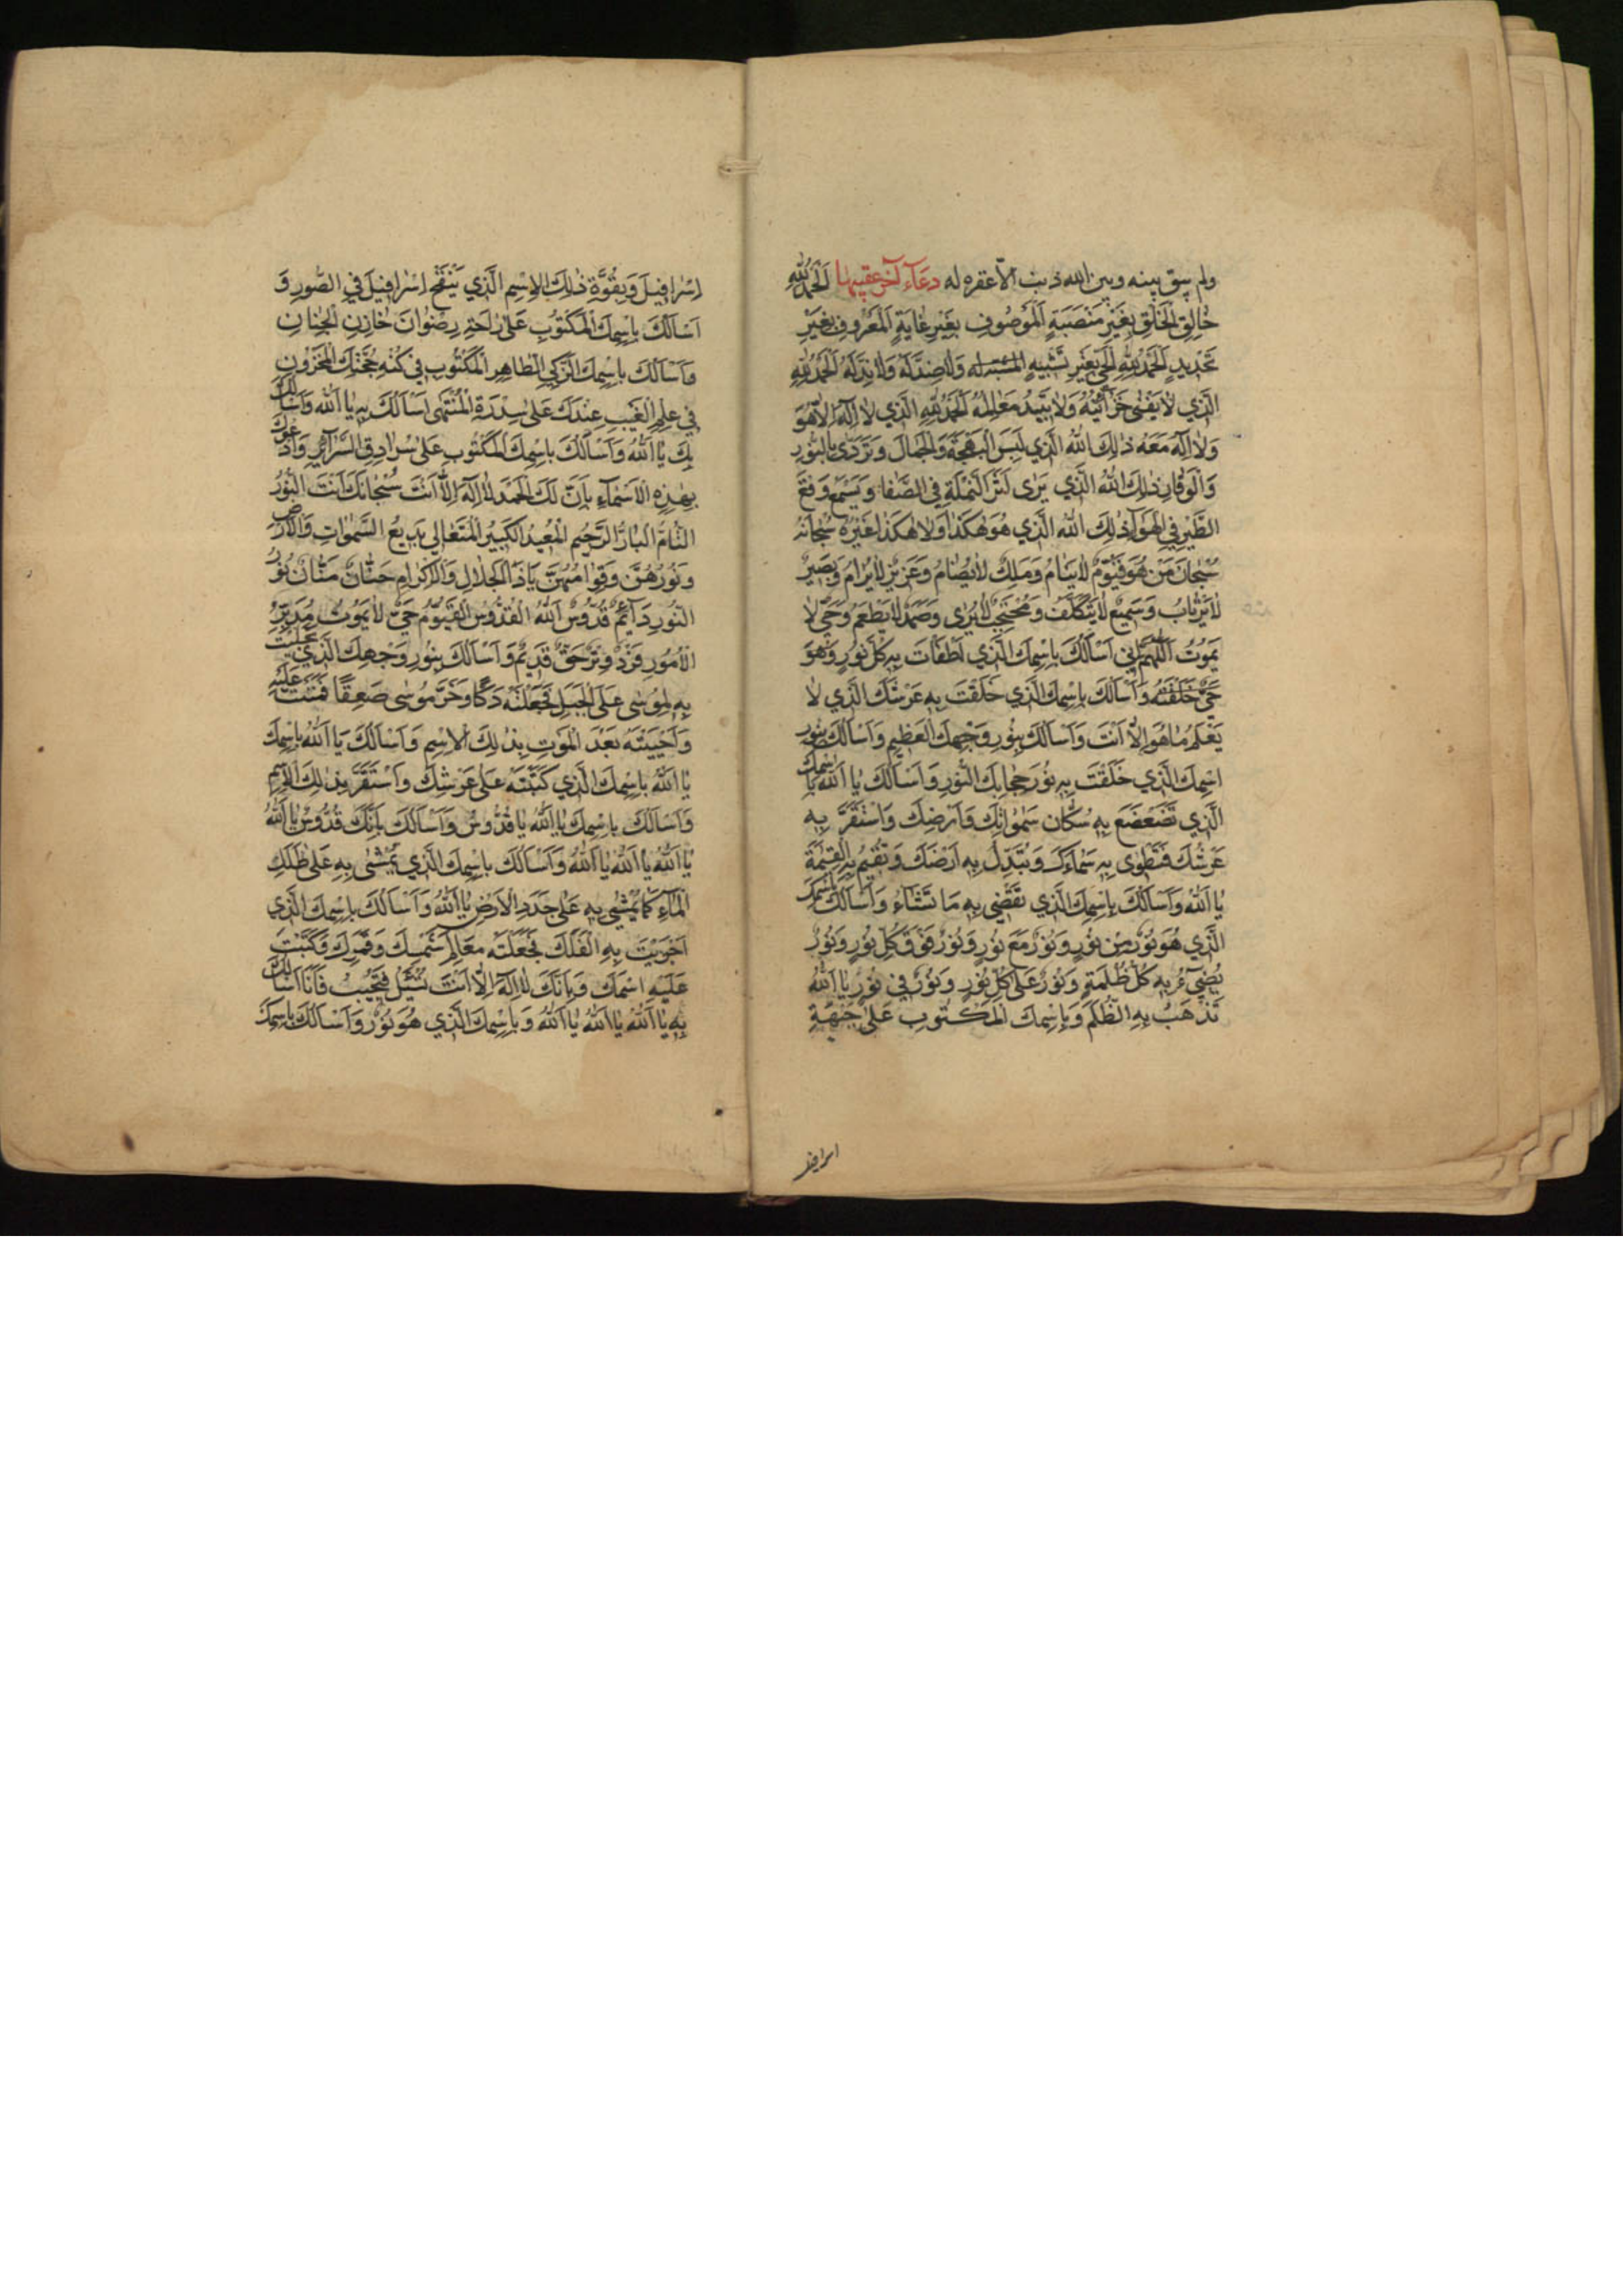 ولم يبق بينه وبين الله ذنب الّا غفره له دعاء آخر عقيبها اَلْحَمْدُ لِلّٰهِ
خالِقِ الْخَلْقِ بِغَيْرِ مَنْصَبَةٍ اَلْمَوْصُوفِ بِغَيْرِ غايَةٍ اَلْمَعْرُوفِ بِغَيْرِ
تَحْدِيدٍ اَلْحَمْدُ لِلّٰهِ الْحَيِّ بِغَيْرِ تَشْبِيهٍ وَلا ضِدَّ لَهُ وَلا نِدَّ لَهُ اَلْحَمْدُ لِلّٰهِ
الَّذِي لا يَفْنى خَزآئِنُهُ وَلا يَبِيدُ مَعالِمُهُ اَلْحَمْدُ لِلّٰهِ الَّذِي لا اِلٰهَ اِلّا هُوَ
وَلا اِلٰهَ مَعَهُ ذٰلِكَ اللهُ الَّذِي لَبِسَ الْبَهْجَةَ وَالْجَمالَ وَتَرَدّى بِالنُّورِ
وَالْوَقارِ ذٰلِكَ اللهُ الَّذِي يَرى اَثَرَ النَّمْلَةِ فِي الصَّفا وَيَسْمَعُ وَقْعَ
الطَّيْرِ فِي الْهَوآءِ ذٰلِكَ اللهُ الَّذِي هُوَ هٰكَذا وَلا هٰكَذا غَيْرُهُ سُبْحانَهُ
سُبْحانَ مَنْ هُوَ قَيُّومٌ لا يَنامُ وَمَلِكٌ لا يُضامُ وَعَزِيزٌ لا يُرامُ وَبَصِيرٌ
لا يَرْتابُ وَسَمِيعٌ لا يَتَكَلَّفُ وَمُحْتَجِبٌ لا يُرى وَصَمَدٌ لا يَطْعَمُ وَحَيٌّ لا
يَمُوتُ اَللّٰهُمَّ اِنِّي اَسْاَلُكَ بِاسْمِكَ الَّذِي اَطْفَأْتَ بِهِ كُلَّ نُورٍ وَهُوَ
حَيٌّ خَلَقْتَهُ وَاَسْاَلُكَ بِاسْمِكَ الَّذِي خَلَقْتَ بِهِ عَرْشَكَ الَّذِي لا
يَعْلَمُ ما هُوَ اِلّا اَنْتَ وَاَسْاَلُكَ بِنُورِ وَجْهِكَ الْعَظِيمِ وَاَسْاَلُكَ بِنُورِ
اسْمِكَ الَّذِي خَلَقْتَ بِهِ نُورَ حِجابِكَ النُّورِ وَاَسْاَلُكَ يا اَللهُ بِاسْمِكَ
الَّذِي تَضَعْضَعَ بِهِ سُكّانُ سَمٰواتِكَ وَاَرْضِكَ وَاسْتَقَرَّ بِهِ
عَرْشُكَ فَتَطْوِي بِهِ سَمآءَكَ وَتُبَدِّلُ بِهِ اَرْضَكَ وَتُقِيمُ بِهِ الْقِيٰمَةَ
يا اَللهُ وَاَسْاَلُكَ بِاسْمِكَ الَّذِي تَقْضِي بِهِ ما تَشآءُ وَاَسْاَلُكَ بِاسْمِكَ
الَّذِي هُوَ نُورٌ مِنْ نُورٍ وَنُورٌ مَعَ نُورٍ وَنُورٌ فَوْقَ كُلِّ نُورٍ وَنُورٌ
يُضِيءُ بِهِ كُلُّ ظُلْمَةٍ وَنُورٌ عَلى كُلِّ نُورٍ وَنُورٌ فِي نُورٍ يا اَللهُ
تَذْهَبُ بِهِ الظُّلَمُ وَبِاسْمِكَ الْمَكْتُوبِ عَلى جَبْهَةِ
اسرافيل
اِسْرافِيلَ وَبِقُوَّةِ ذٰلِكَ الْاِسْمِ الَّذِي يَنْفُخُ اِسْرافِيلُ فِي الصُّورِ وَ
اَسْاَلُكَ بِاسْمِكَ الْمَكْتُوبِ عَلى راحَةِ رِضْوانَ خازِنِ الْجِنانِ
وَاَسْاَلُكَ بِاسْمِكَ الزَّكِيِّ الطّاهِرِ الْمَكْتُوبِ فِي كُنْهِ حُجُبِكَ الْمَخْزُونِ
فِي عِلْمِ الْغَيْبِ عِنْدَكَ عَلى سِدْرَةِ الْمُنْتَهى اَسْاَلُكَ بِهِ يا اَللهُ وَاَسْاَلُكَ
بِكَ يا اَللهُ وَاَسْاَلُكَ بِاسْمِكَ الْمَكْتُوبِ عَلى سُرادِقِ السَّرآئِرِ وَاَدْعُوكَ
بِهٰذِهِ الْاَسْمآءِ بِاَنَّ لَكَ الْحَمْدَ لا اِلٰهَ اِلّا اَنْتَ سُبْحانَكَ اَنْتَ النُّورُ
التّامُّ الْبارُّ الرَّحِيمُ الْمُعِيدُ الْكَبِيرُ الْمُتَعالِي بَدِيعُ السَّمٰواتِ وَالْاَرْضِ
وَنُورُهُنَّ وَقِوامُهُنَّ يا ذَا الْجَلالِ وَالْاِكْرامِ حَنّانٌ مَنّانٌ نُورُ
النُّورِ دآئِمٌ قُدُّوسٌ اَللهُ الْقُدُّوسُ الْقَيُّومُ حَيٌّ لا يَمُوتُ مُدَبِّرُ
الْاُمُورِ فَرْدٌ وِتْرٌ حَقٌّ قَدِيمٌ وَاَسْاَلُكَ بِنُورِ وَجْهِكَ الَّذِي تَجَلَّيْتَ
بِهِ لِمُوسى عَلَى الْجَبَلِ فَجَعَلْتَهُ دَكًّا وَخَرَّ مُوسى صَعِقًا فَمَنَنْتَ عَلَيْهِ
وَاَحْيَيْتَهُ بَعْدَ الْمَوْتِ بِذٰلِكَ الْاِسْمِ وَاَسْاَلُكَ يا اَللهُ بِاسْمِكَ
يا اَللهُ بِاسْمِكَ الَّذِي كَتَبْتَهُ عَلى عَرْشِكَ وَاسْتَقَرَّ بِذٰلِكَ الْاِسْمِ
وَاَسْاَلُكَ بِاسْمِكَ يا اَللهُ يا قُدُّوسُ وَاَسْاَلُكَ بِاَنَّكَ قُدُّوسٌ يا اَللهُ
يا اَللهُ يا اَللهُ يا اَللهُ وَاَسْاَلُكَ بِاسْمِكَ الَّذِي يُمْشى بِهِ عَلى ظُلَلِ
الْمآءِ كَما يُمْشى بِهِ عَلى جَدَدِ الْاَرْضِ يا اَللهُ وَاَسْاَلُكَ بِاسْمِكَ الَّذِي
اَجْرَيْتَ بِهِ الْفَلَكَ فَجَعَلْتَهُ مَعالِمَ شَمْسِكَ وَقَمَرِكَ وَكَتَبْتَ
عَلَيْهِ اسْمَكَ وَبِاَنَّكَ لا اِلٰهَ اِلّا اَنْتَ تُسْئَلُ فَتُجِيبُ فَاَنَا اَسْاَلُكَ
بِهِ يا اَللهُ يا اَللهُ يا اَللهُ وَبِاسْمِكَ الَّذِي هُوَ نُورٌ وَاَسْاَلُكَ بِاسْمِكَ